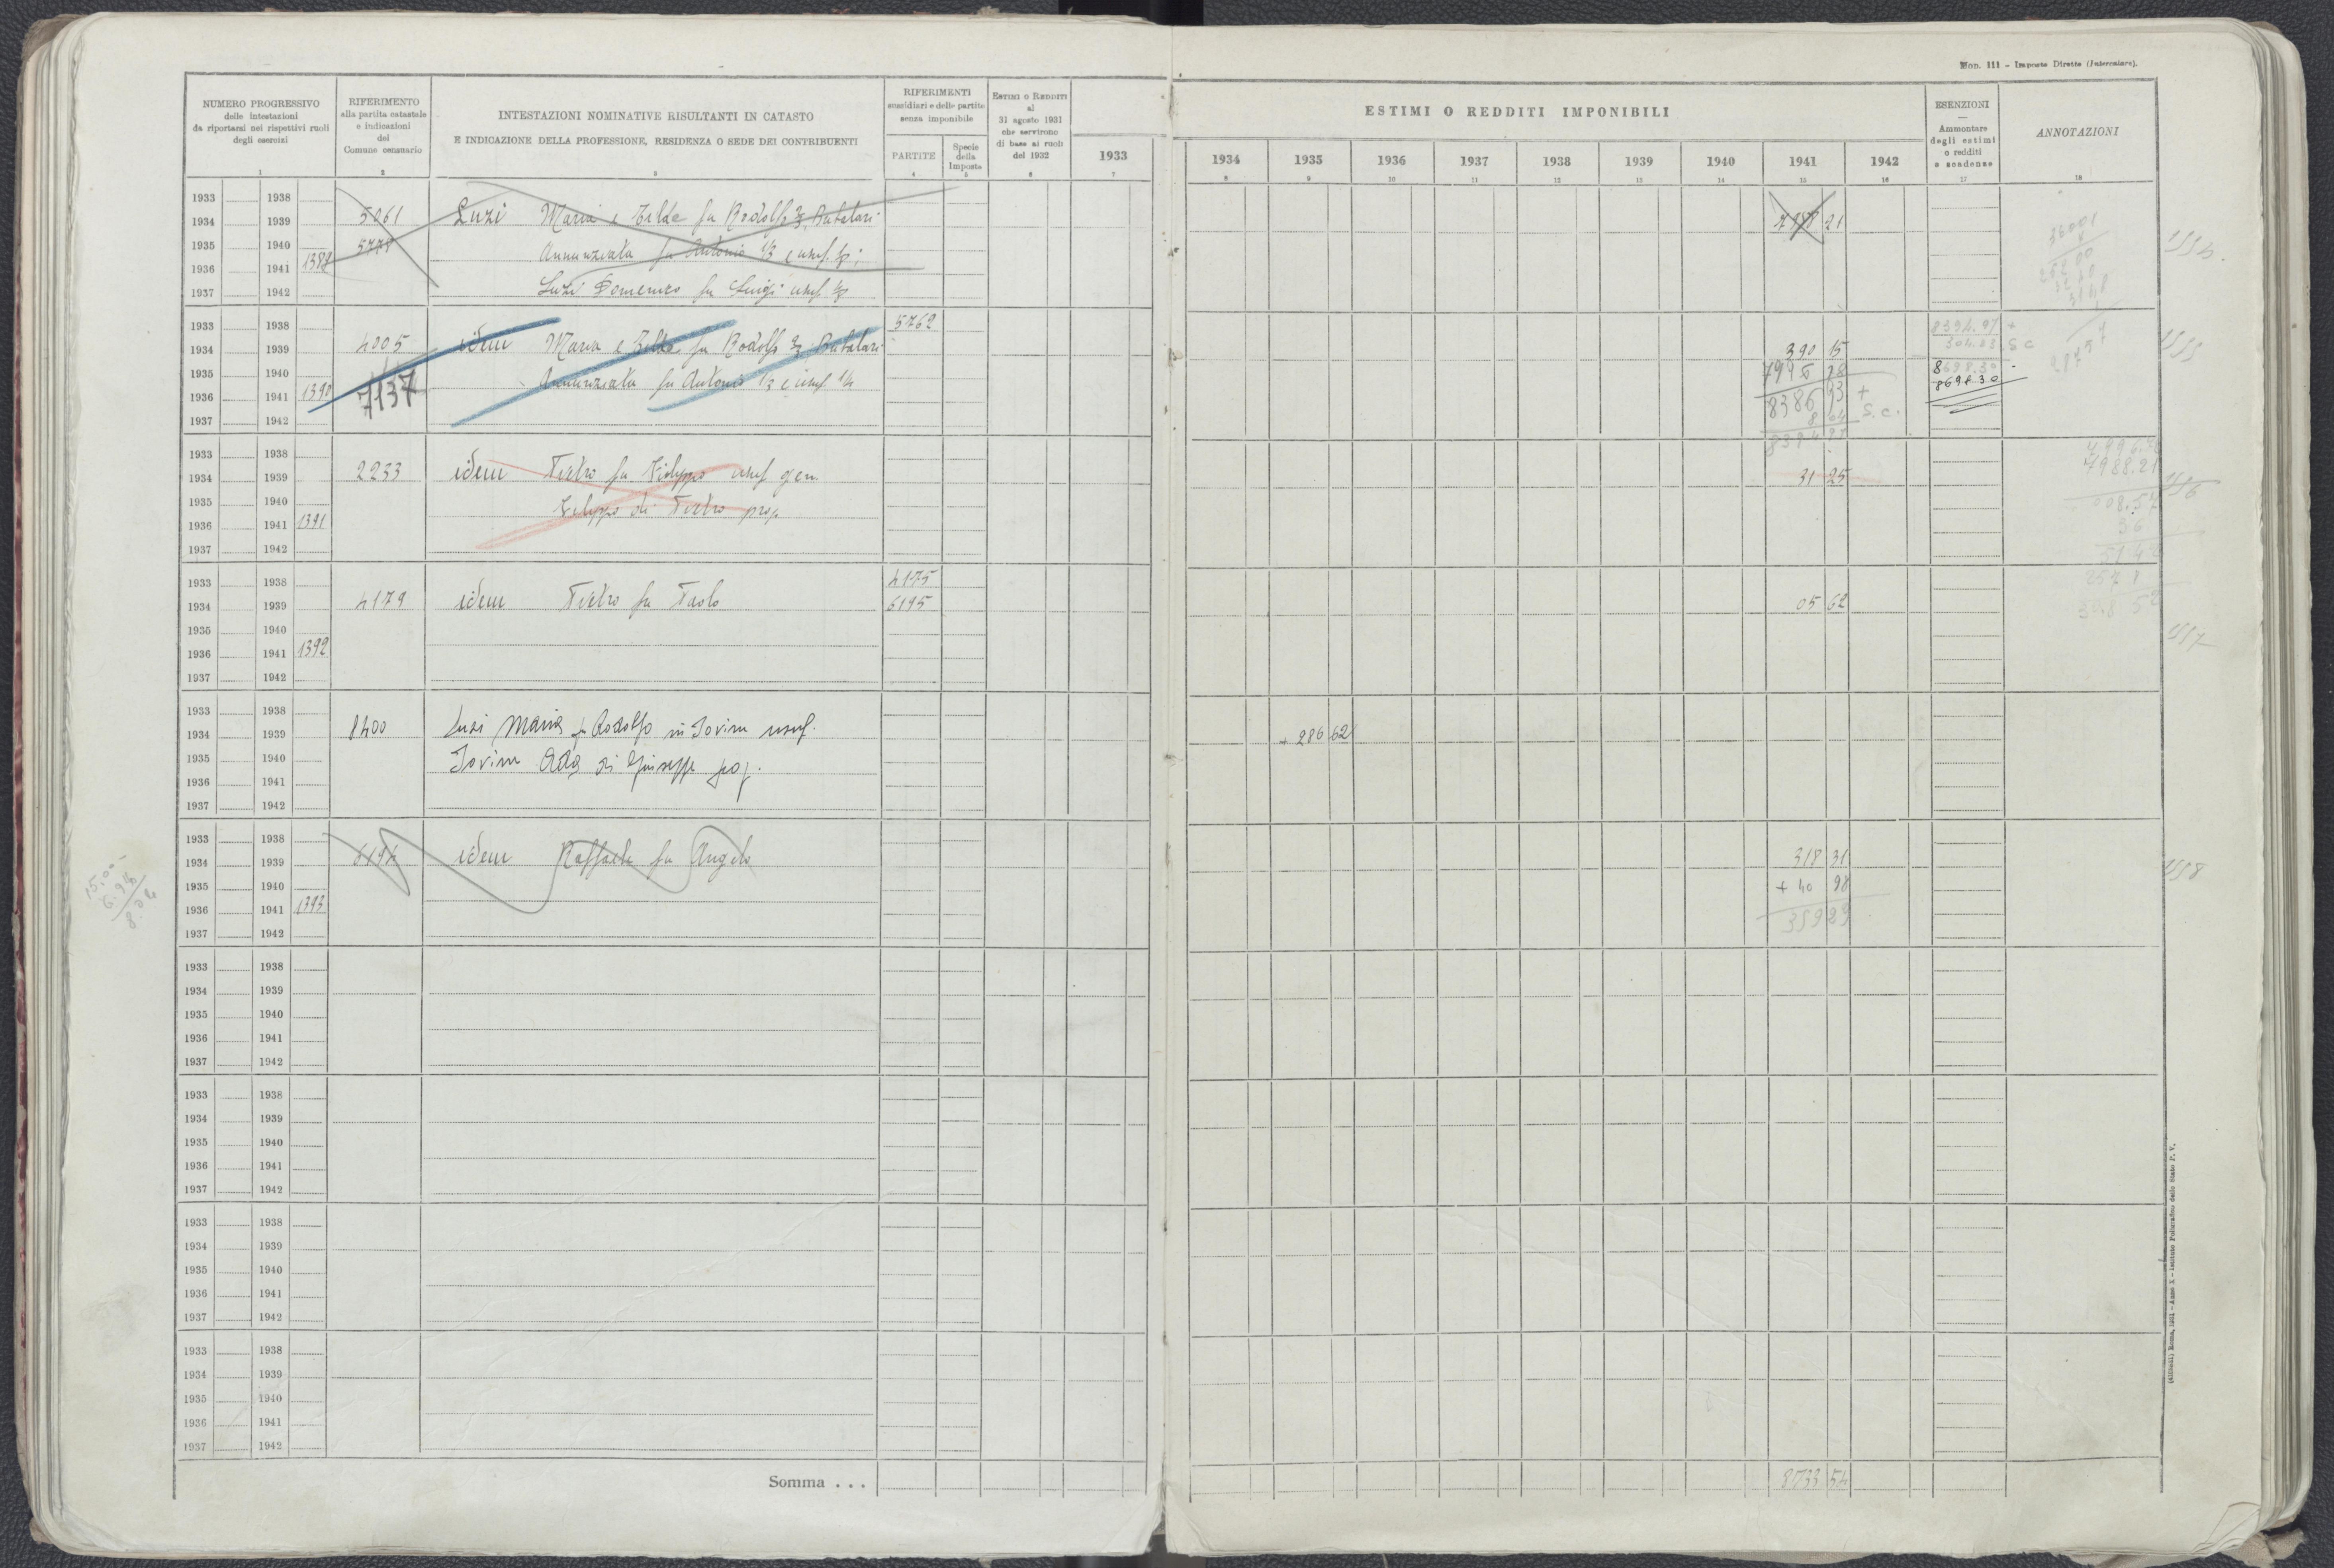 Mod. 111 – Imposte Dirette (Intercalare).
NUMERO PROGRESSIVO
delle intestazioni
da riportarsi nei rispettivi ruoli
degli esercizi
1
RIFERIMENTO
alla partita catastale
e indicazioni
del
Comune censuario
2
INTESTAZIONI NOMINATIVE RISULTANTI IN CATASTO
E INDICAZIONE DELLA PROFESSIONE, RESIDENZA O SEDE DEI CONTRIBUENTI
3
RIFERIMENTI
sussidiari e delle partite
senza imponibile
PARTITE
4
Specie
della
Imposta
5
ESTIMI O REDDITI
al
31 agosto 1931
che servirono
di base ai ruoli
del 1932
6
ESTIMI O REDDITI IMPONIBILI
1933 1934 1935 1936 1937 1938 1939 1940 1941 1942
7 8 9 10 11 12 13 14 15 16
ESENZIONI
—
Ammontare
degli estimi
o redditi
e scadenze
17
ANNOTAZIONI
18
1933 1938
1934 1939 5061 Luzi Maria e Tilde fu Rodolfo 21
1935 1940 5778 Annunziata fu Antonio 1/3 e usuf.
1936 1941 1389
1937 1942 Luzi Domenico fu Luigi usuf.
1933 1938 5762 8394.97 +
1934 1939 4005 idem Maria e Tilde fu Rodolfo 390 15 304.33 S.c
1935 1940 Annunziata fu Antonio 1/3 e usuf. 8698.30
1936 1941 1390 7137 8386 93 + 8698.30
8 04 S.c.
1937 1942 8394 97
1933 1938
1934 1939 2233 idem Pietro fu Filippo usuf gen. 31 25 7988.21
1935 1940 Filippo di Pietro prop
1936 1941 1391
1937 1942
1933 1938 4175
1934 1939 4179 idem Pietro fu Paolo 6195 05 62
1935 1940
1936 1941 1392
1937 1942
1933 1938
1934 1939 8400 Luzi Maria fu Rodolfo in Iovine usuf. + 286 62
1935 1940 Iovine Ada di Giuseppe prop.
1936 1941
1937 1942
1933 1938
1934 1939 6194 idem Raffaele fu Angelo 318 31
1935 1940 + 40 98
1936 1941 1393 359 29
1937 1942
1933 1938
1934 1939
1935 1940
1936 1941
1937 1942
1933 1938
1934 1939
1935 1940
1936 1941
1937 1942
1933 1938
1934 1939
1935 1940
1936 1941
1937 1942
1933 1938
1934 1939
1935 1940
1936 1941
1937 1942
Somma . . . 8733 54